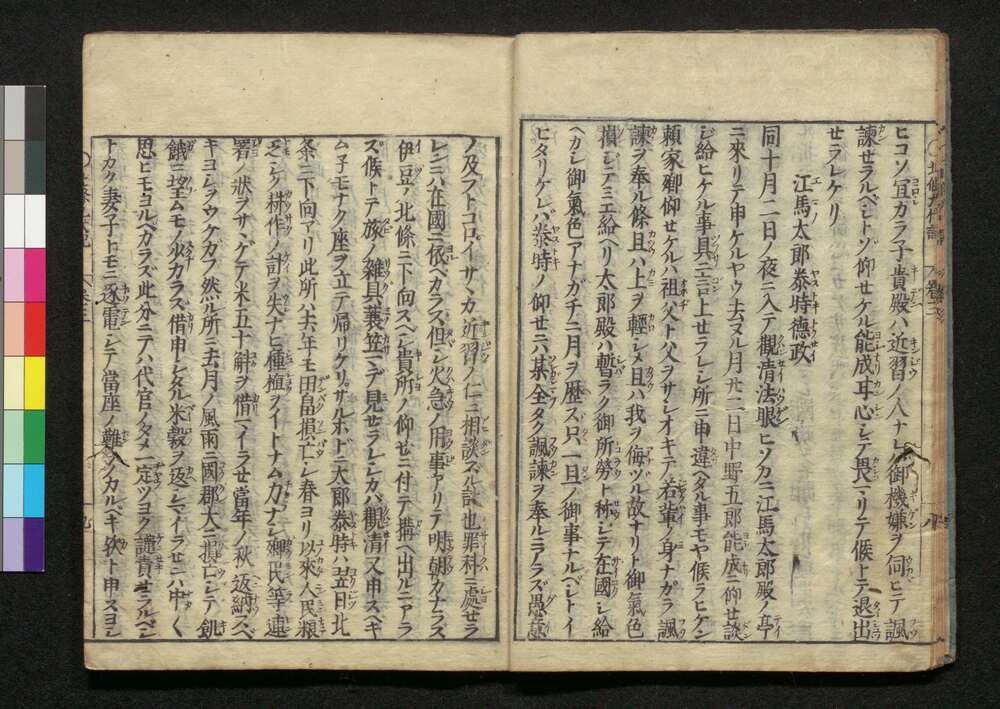 ヒコソ宜カラメ子貴殿ハ近習ノ人ナレハ御機嫌ヲ伺ヒテ諷
諫セラルベシトゾ仰セケル能成耳心シテ畏マリテ候トテ退出
セラレケリ
江馬太郎泰時德政
同十月二日ノ夜ニ入テ觀清法眼ヒソカニ江馬太郎殿ノ亭
ニ來リテ申ケルヤウ去ヌル月廿二日中野五郎能成ニ仰セ談
シ給ヒケル事具ニ言上セラレシ所ニ申違ヘタル事モヤ候ラヒケン
頼家卿仰セケルハ祖父ト父ヲサシオキテ若輩ノ身ナガラ諷
諫ヲ奉ル條且ハ上ヲ輕シメ且ハ我ヲ侮ヅル故ナリト御氣色
損シテミエ給ヘリ太郎殿ハ暫ラク御所勞ト称シテ在國シ給
ヘカシ御氣色アナガチニ月ヲ歴ス只一旦ノ御事ナルベシトイ
ヒタリケレバ泰時ノ仰セニハ某全タク諷諫ヲ奉ルニアラズ愚意
ノ及フトコロイサヽカ近習ノ仁ニ相談スル計也罪科ニ處セラ
レンニハ在國ニ依ベカラス但シ火急ノ用事アリテ明朝カナラス
伊豆ノ北條ニ下向スヘシ貴所ノ仰セニ付テ搆ヘ出ルニアラ
ズ候トテ旅ノ雜具蓑笠マデ見セラレシカバ觀清又申スベキ
ム子モナク座ヲ立テ帰リケリサルホドニ太郎泰時ハ翌日北
条ニ下向アリ此所ハ去年モ田畠損亡シ春ヨリ以來人民粮
乏シク耕作ノ計ヲ失ナヒ種植ヲイトナム力ナシ郷民等連
署ノ狀ヲサヽゲテ米五十斛ヲ借マイラセ當年ノ秋返納スベ
キヨシヲウケカフ然ル所ニ去月ノ風雨ニ國郡大ニ損亡シテ飢
餓ニ望ムモノ少カラス借申シタル米穀ヲ返シマイラセンハ中〱
思ヒモヨルベカラズ此分ニテハ代官ノタメ一定ツヨク譴責セラルベシ
トカク妻子トモニ逐電シテ當座ノ難ヲノカルベキ欤ト申スヨシ